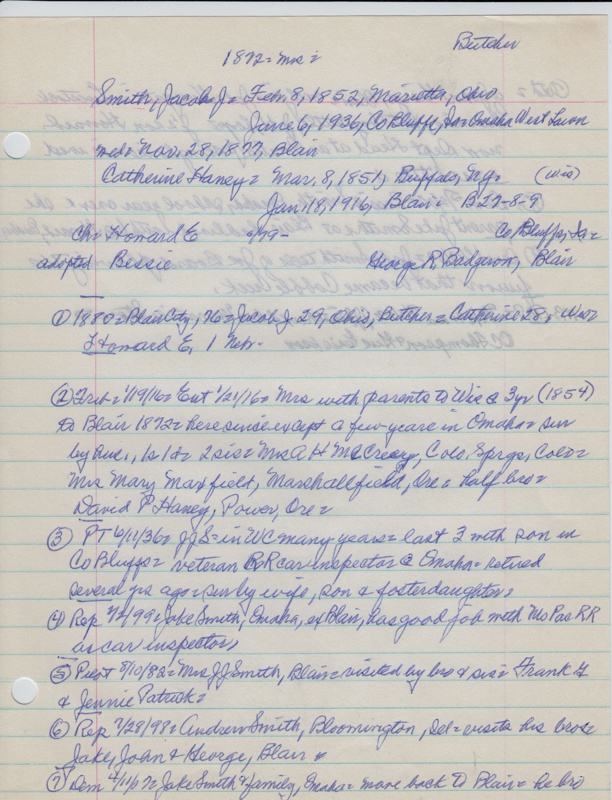 Butcher
1872 = Mrs =
Smith, Jacob J = Feb. 8, 1852, Marietta, Ohio
June 6, 1936, Co Bluffs, Ia = Omaha West Lawn
med = Nov. 28, 1877, Blair
Catherine Haney = Mar. 8, 1851, Buffalo, N.Y. = (Wis)
Jan. 18, 1916, Blair = B 27-8-9
Ch = Howard E 9/79 - Co Bluffs, Ia =
adopted Bessie George R. Badgerow, Blair
① 1880 = Blair City, Ne = Jacob J. 29, Ohio, Butcher = Catherine 28,
Howard E, 1 Nebr.
② Trib = 1/19/16 = Ent 1/21/16 = Mrs with parents to Wis @ 3 yr (1854)
to Blair 1872 = here since except a few years in Omaha = sur
by hus., 1s 1d = 2 sis = Mrs A H McCreery, Colo. Sprgs, Colo =
Mrs Mary Maxfield, Marshallfield, Ore = half bro =
David P. Haney, Power, Ore =
③ PT 6/11/36 = JJS = in WC many years = last 3 with son in
Co Bluffs = veteran RR car inspector @ Omaha = retired
several yrs ago = sur by wife, son & foster daughter =
④ Rep 7/2/99 = Jake Smith, Omaha, of Blair, has good job with Mo Pac RR
as car inspector,
⑤ 8/10/82 = Mrs JJ Smith, Blair = visited by bro & sis = Frank
& Jennie Patrick =
⑥ Rep 7/28/9 = Andrew Smith, Bloomington, = visits his bros =
Jake, John & George, Blair
⑦ Dem 4/11/ = Jake Smith & family, Omaha = move back to Blair = he bro